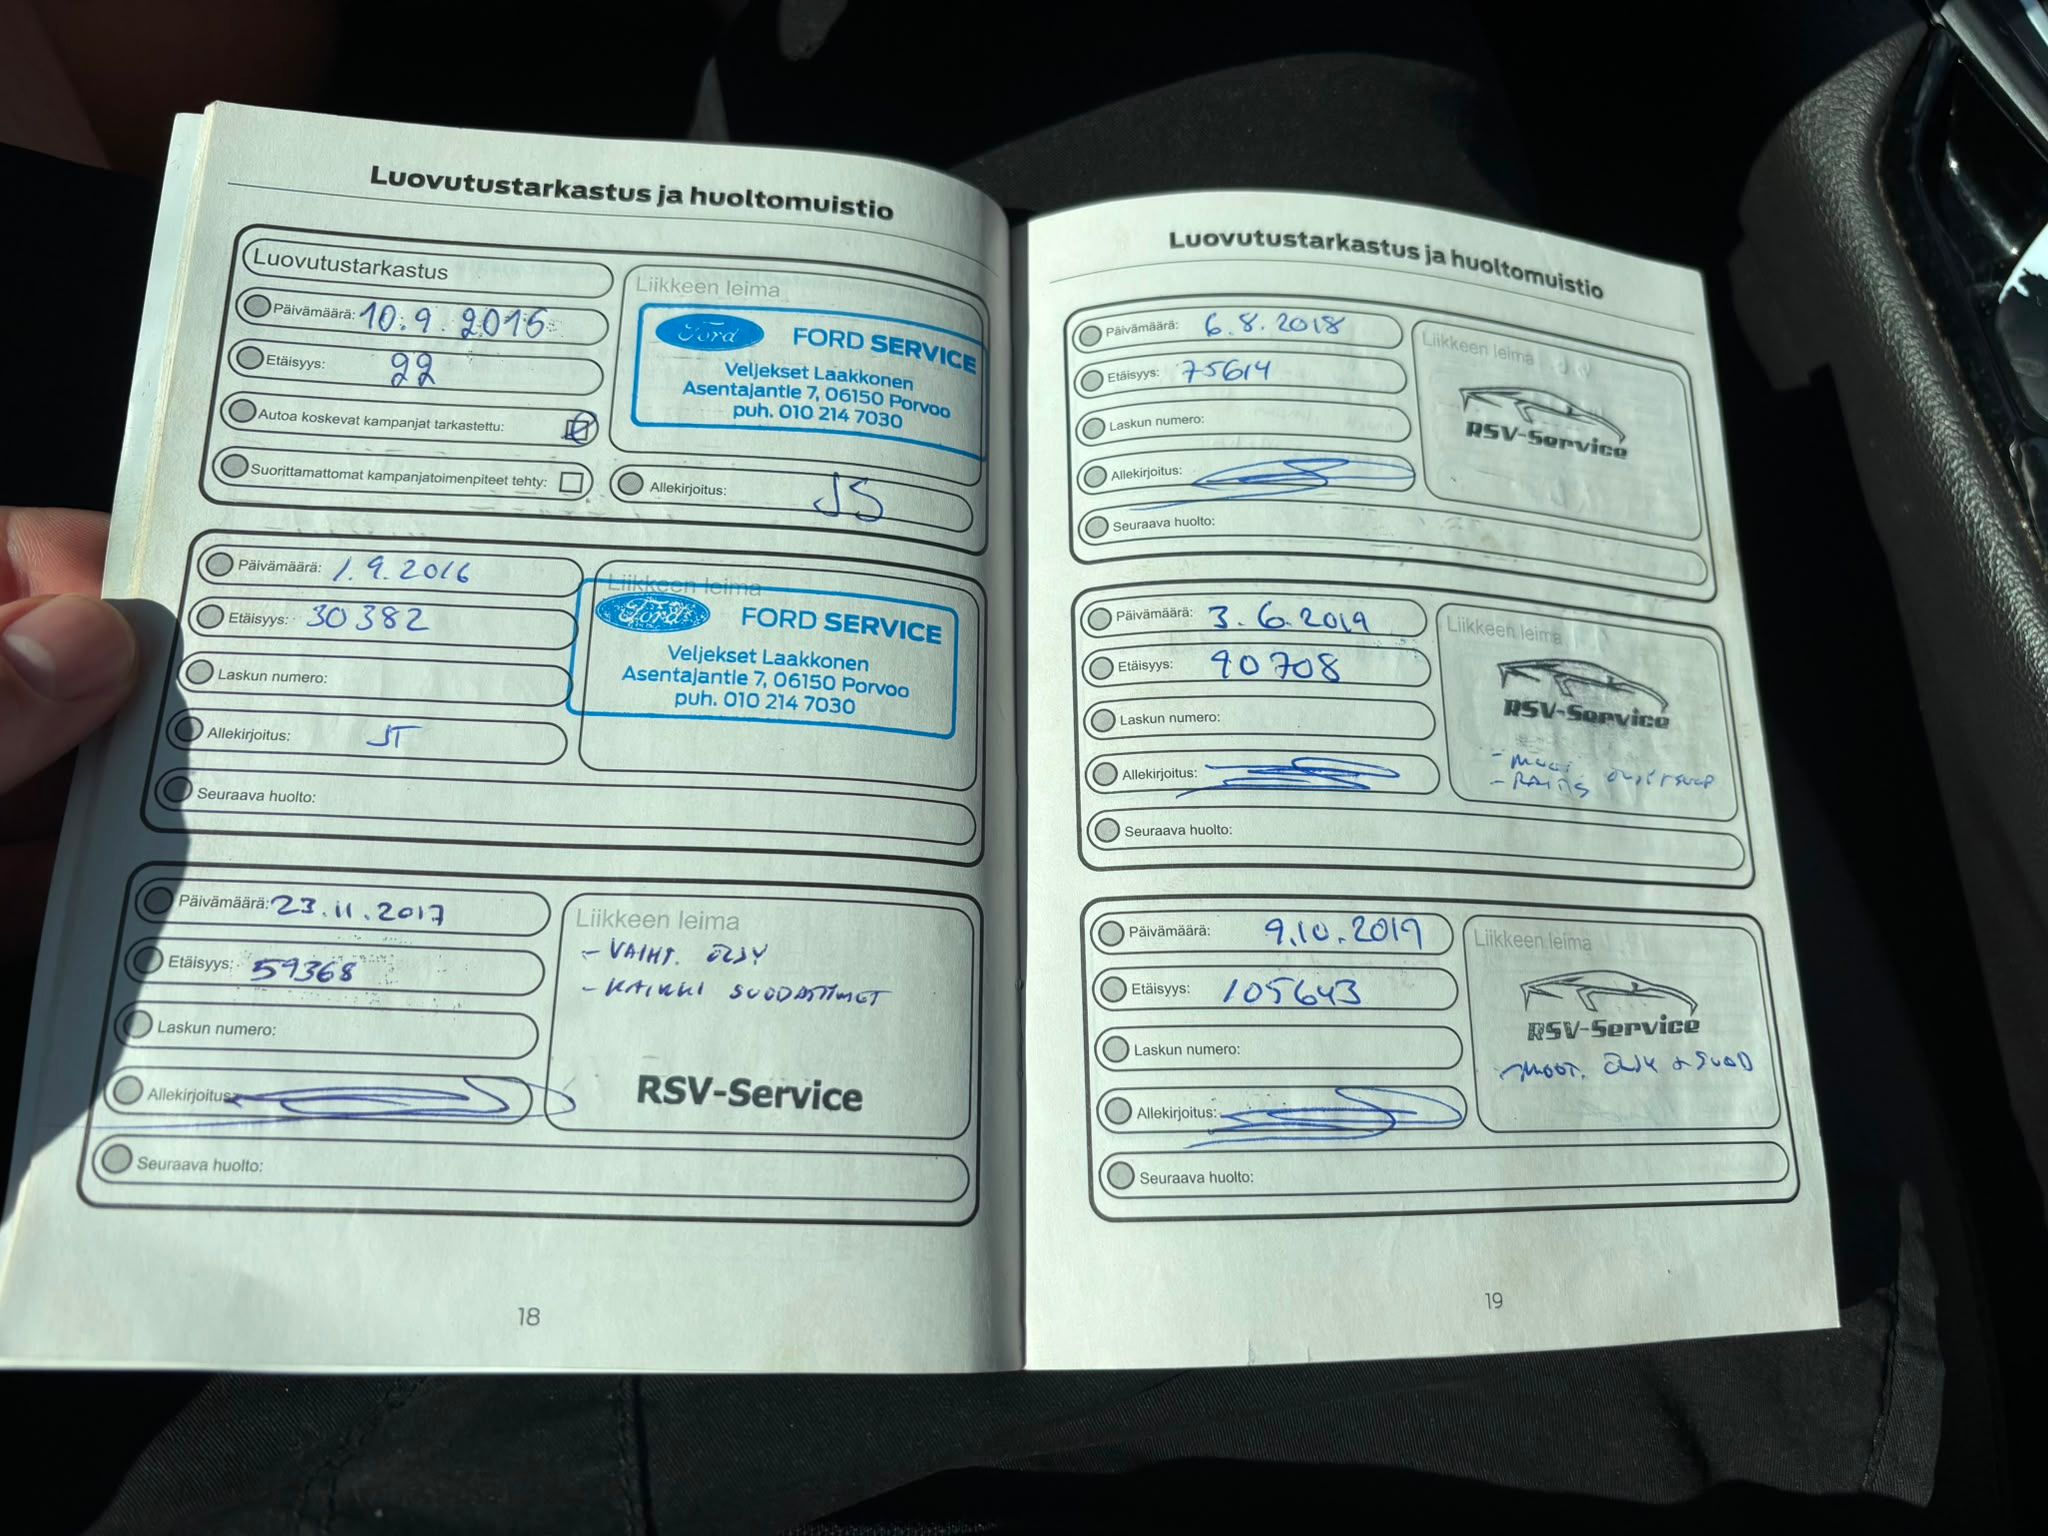 Luovutustarkastus ja huoltomuistio
Luovutustarkastus
Päivämäärä: 10.9.2015
Etäisyys: 22
Autoa koskevat kampanjat tarkastettu:
Suorittamattomat kampanjatoimenpiteet tehty:
Liikkeen leima
Ford FORD SERVICE
Veljekset Laakkonen
Asentajantie 7, 06150 Porvoo
puh. 010 214 7030
Allekirjoitus: JS
Päivämäärä: 1.9.2016
Etäisyys: 30382
Laskun numero:
Allekirjoitus: JT
Seuraava huolto:
Liikkeen leima
Ford FORD SERVICE
Veljekset Laakkonen
Asentajantie 7, 06150 Porvoo
puh. 010 214 7030
Päivämäärä: 23.11.2017
Etäisyys: 59368
Laskun numero:
Allekirjoitus:
Seuraava huolto:
Liikkeen leima
- VAIHT. ÖLJY
- KAIKKI SUODATTIMET
RSV-Service
18
Luovutustarkastus ja huoltomuistio
Päivämäärä: 6.8.2018
Etäisyys: 75614
Laskun numero:
Allekirjoitus:
Seuraava huolto:
Liikkeen leima
RSV-Service
Päivämäärä: 3.6.2019
Etäisyys: 90708
Laskun numero:
Allekirjoitus:
Seuraava huolto:
Liikkeen leima
RSV-Service
Päivämäärä: 9.10.2019
Etäisyys: 105643
Laskun numero:
Allekirjoitus:
Seuraava huolto:
Liikkeen leima
RSV-Service
- MOOT. ÖLJY + SUOD
19